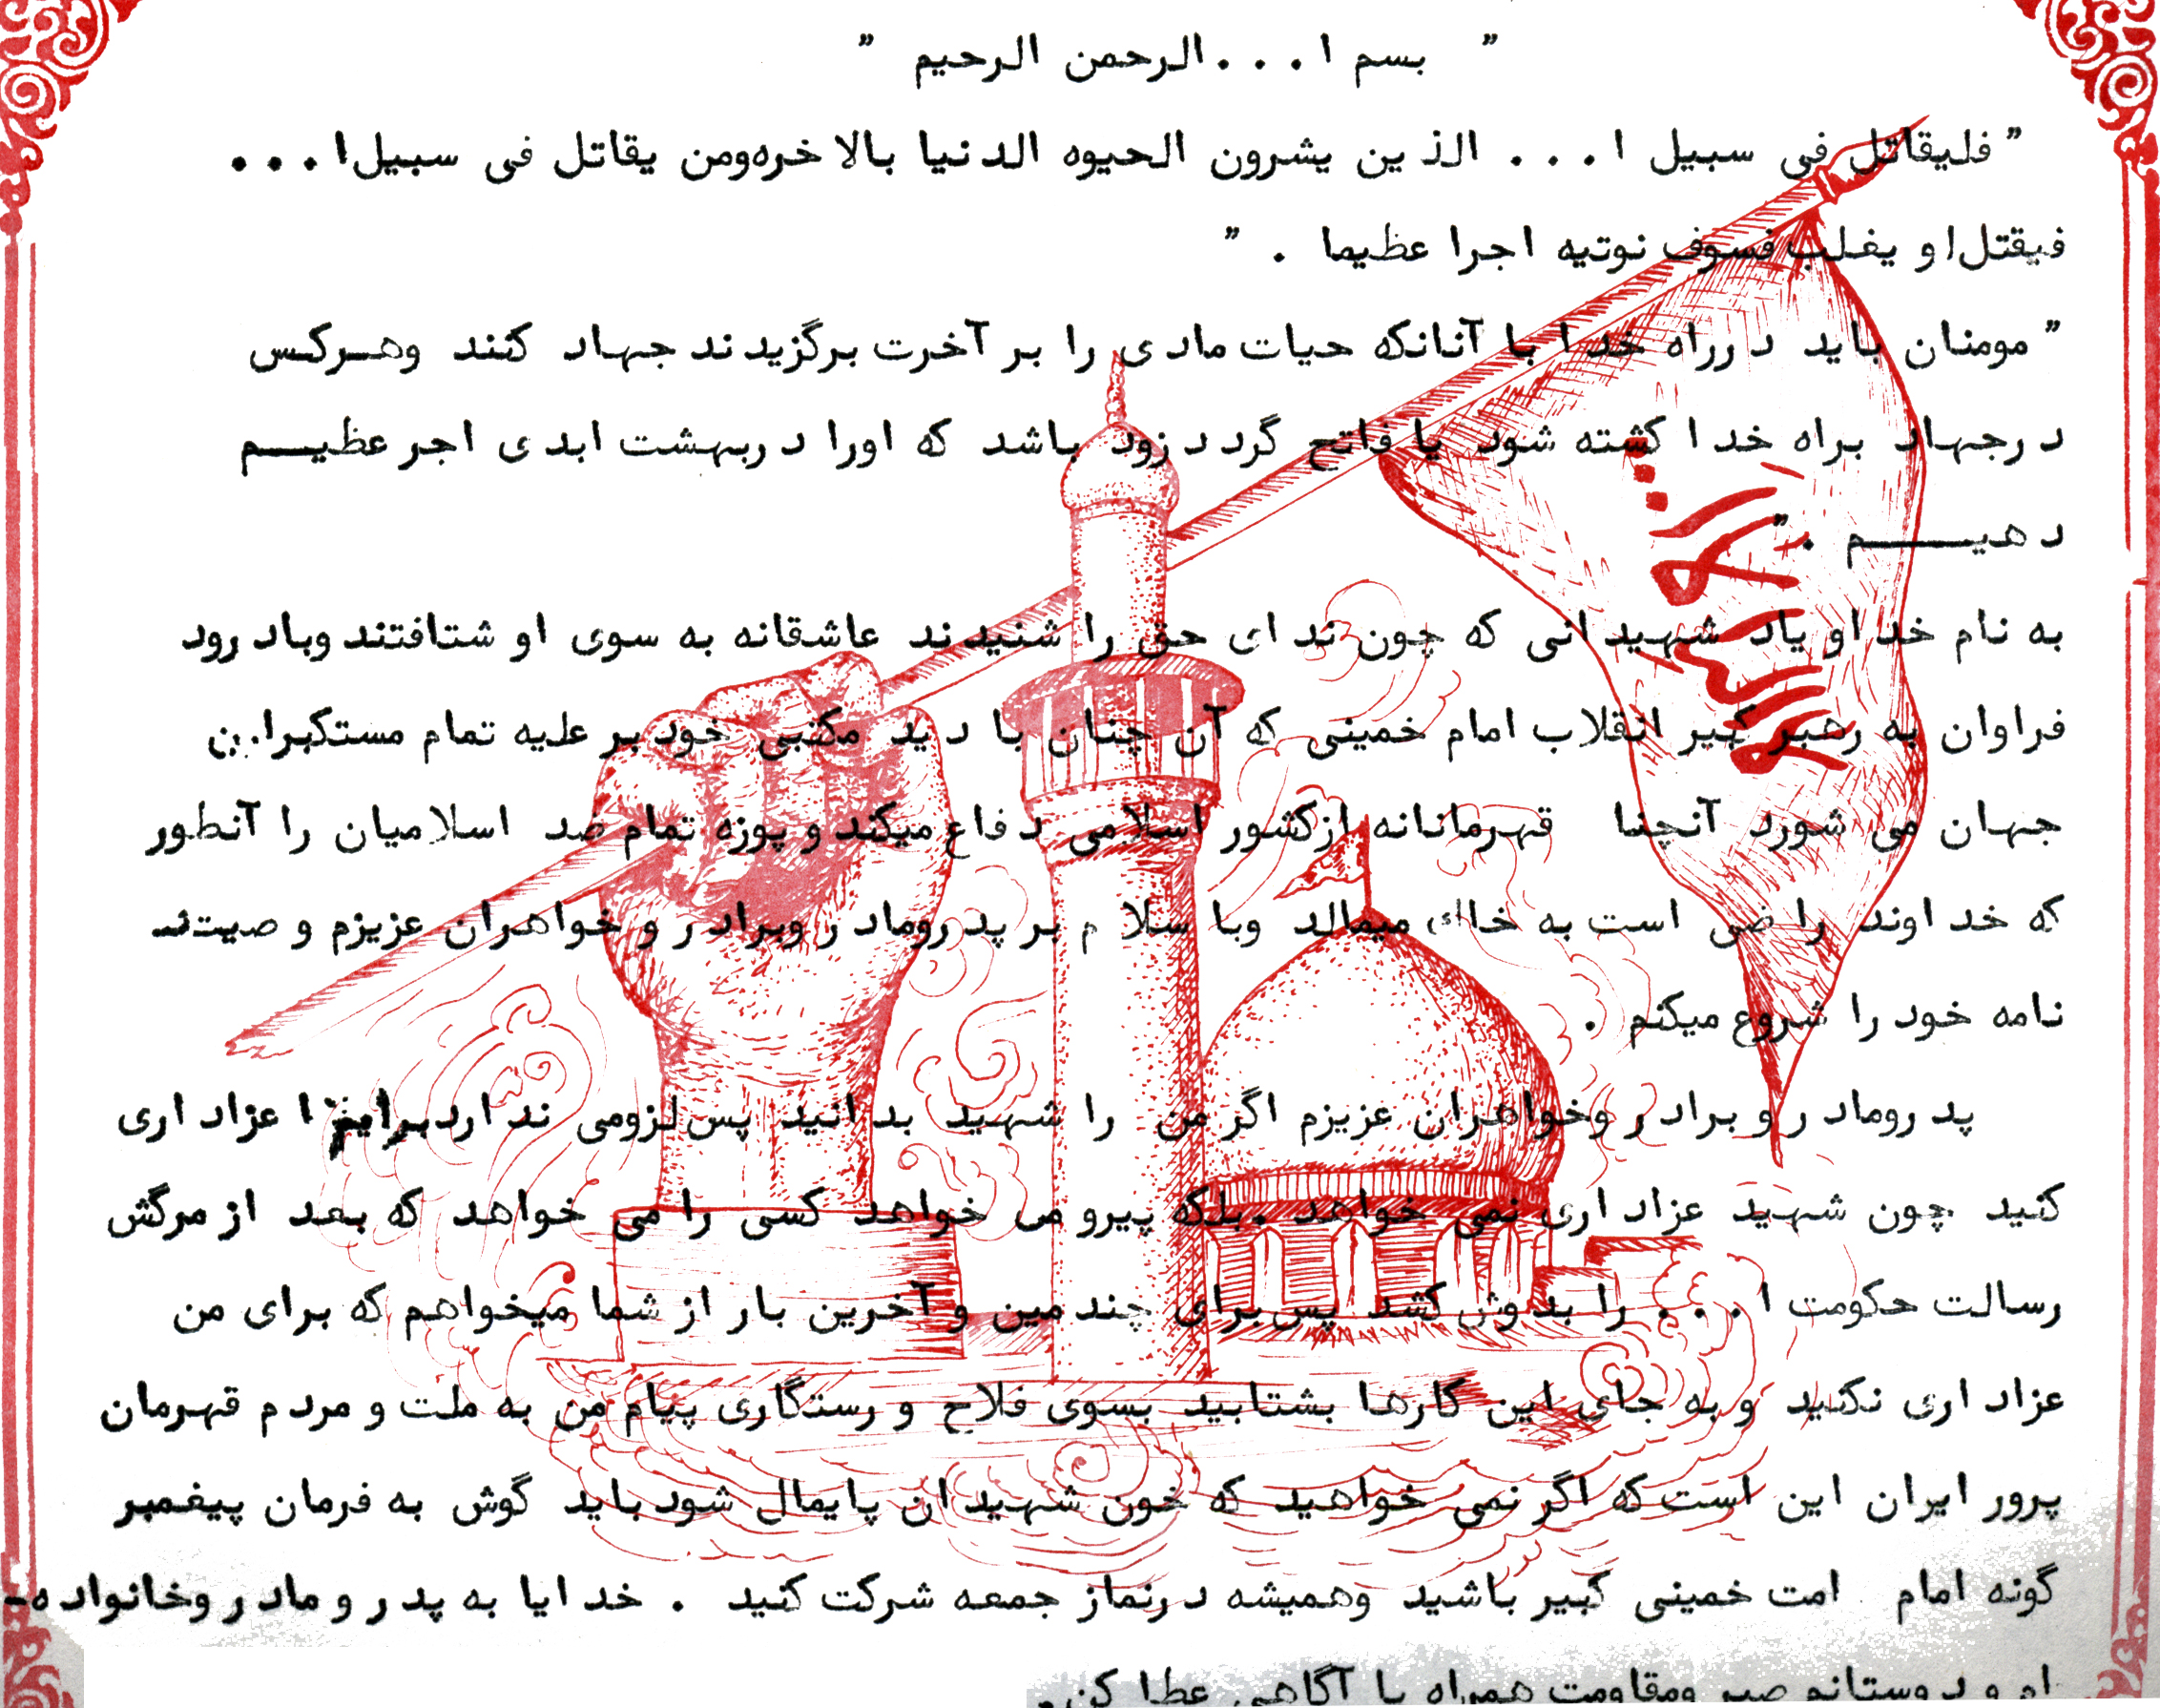 ” بسم ا... الرحمن الرحیم ”
” فلیقاتل فی سبیل ا... الذین یشرون الحیوه الدنیا بالاخره ومن یقاتل فی سبیل ا...
فیقتل او یغلب فسوف نوتیه اجرا عظیما . ”
” مومنان باید درراه خدا با آنانکه حیات مادی را بر آخرت برگزیدند جهاد کنند وهرکس
درجهاد براه خدا کشته شود یا فاتح گردد زود باشد که اورا دربهشت ابدی اجر عظیم
دهیم . ”
به نام خدا و یاد شهیدانی که چون ندای حق را شنیدند عاشقانه به سوی او شتافتند وبادرود
فراوان به رهبر کبیر انقلاب امام خمینی که آن چنان با دید مکتبی خود بر علیه تمام مستکبراین
جهان می شورد آنچنا قهرمانانه ازکشور اسلامی دفاع میکند و پوزه تمام ضد اسلامیان را آنطور
که خداوند راضی است به خاک میمالد وبا سلام بر پدرومادر وبرادر و خواهران عزیزم و صیت
نامه خود را شروع میکنم .
پدرومادر و برادر وخواهران عزیزم اگر من را شهید بدانید پس لزومی ندارد برایم عزاداری
کنید چون شهید عزاداری نمی خواهد . بلکه پیرو می خواهد کسی را می خواهد که بعد از مرگش
رسالت حکومت ا... را بدوش کشد پس برای چندمین و آخرین بار از شما میخواهم که برای من
عزاداری نکنید و به جای این کارها بشتابید بسوی فلاح و رستگاری پیام من به ملت و مردم قهرمان
پرور ایران این است که اگر نمی خواهید که خون شهیدان پایمال شود باید گوش به فرمان پیغمبر
گونه امام امت خمینی کبیر باشید وهمیشه درنماز جمعه شرکت کنید . خدایا به پدر و مادر وخانواده-
ام و دوستانم صبر ومقاومت همراه با آگاهی عطا کن.